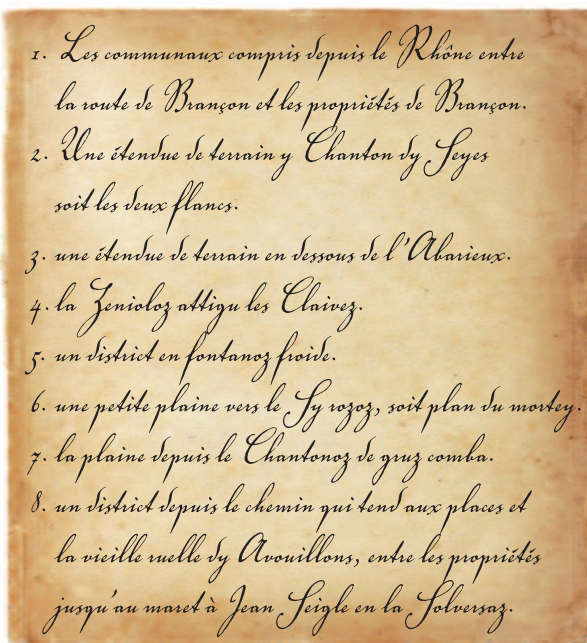 1. Les communaux compris depuis le Rhône entre
la route de Brançon et les propriétés de Brançon.
2. Une étendue de terrain y Chanton dy Seyes
soit les deux flancs.
3. une étendue de terrain en dessous de l'Abarieux.
4. la Zenioloz attigu les Claivez.
5. un district en fontanoz froide.
6. une petite plaine vers le Sy rozoz, soit plan du mortey.
7. la plaine depuis le Chantonoz de gruz comba.
8. un district depuis le chemin qui tend aux places et
la vieille ruelle dy Avouillons, entre les propriétés
jusqu'au maret à Jean Seigle en la Solversaz.